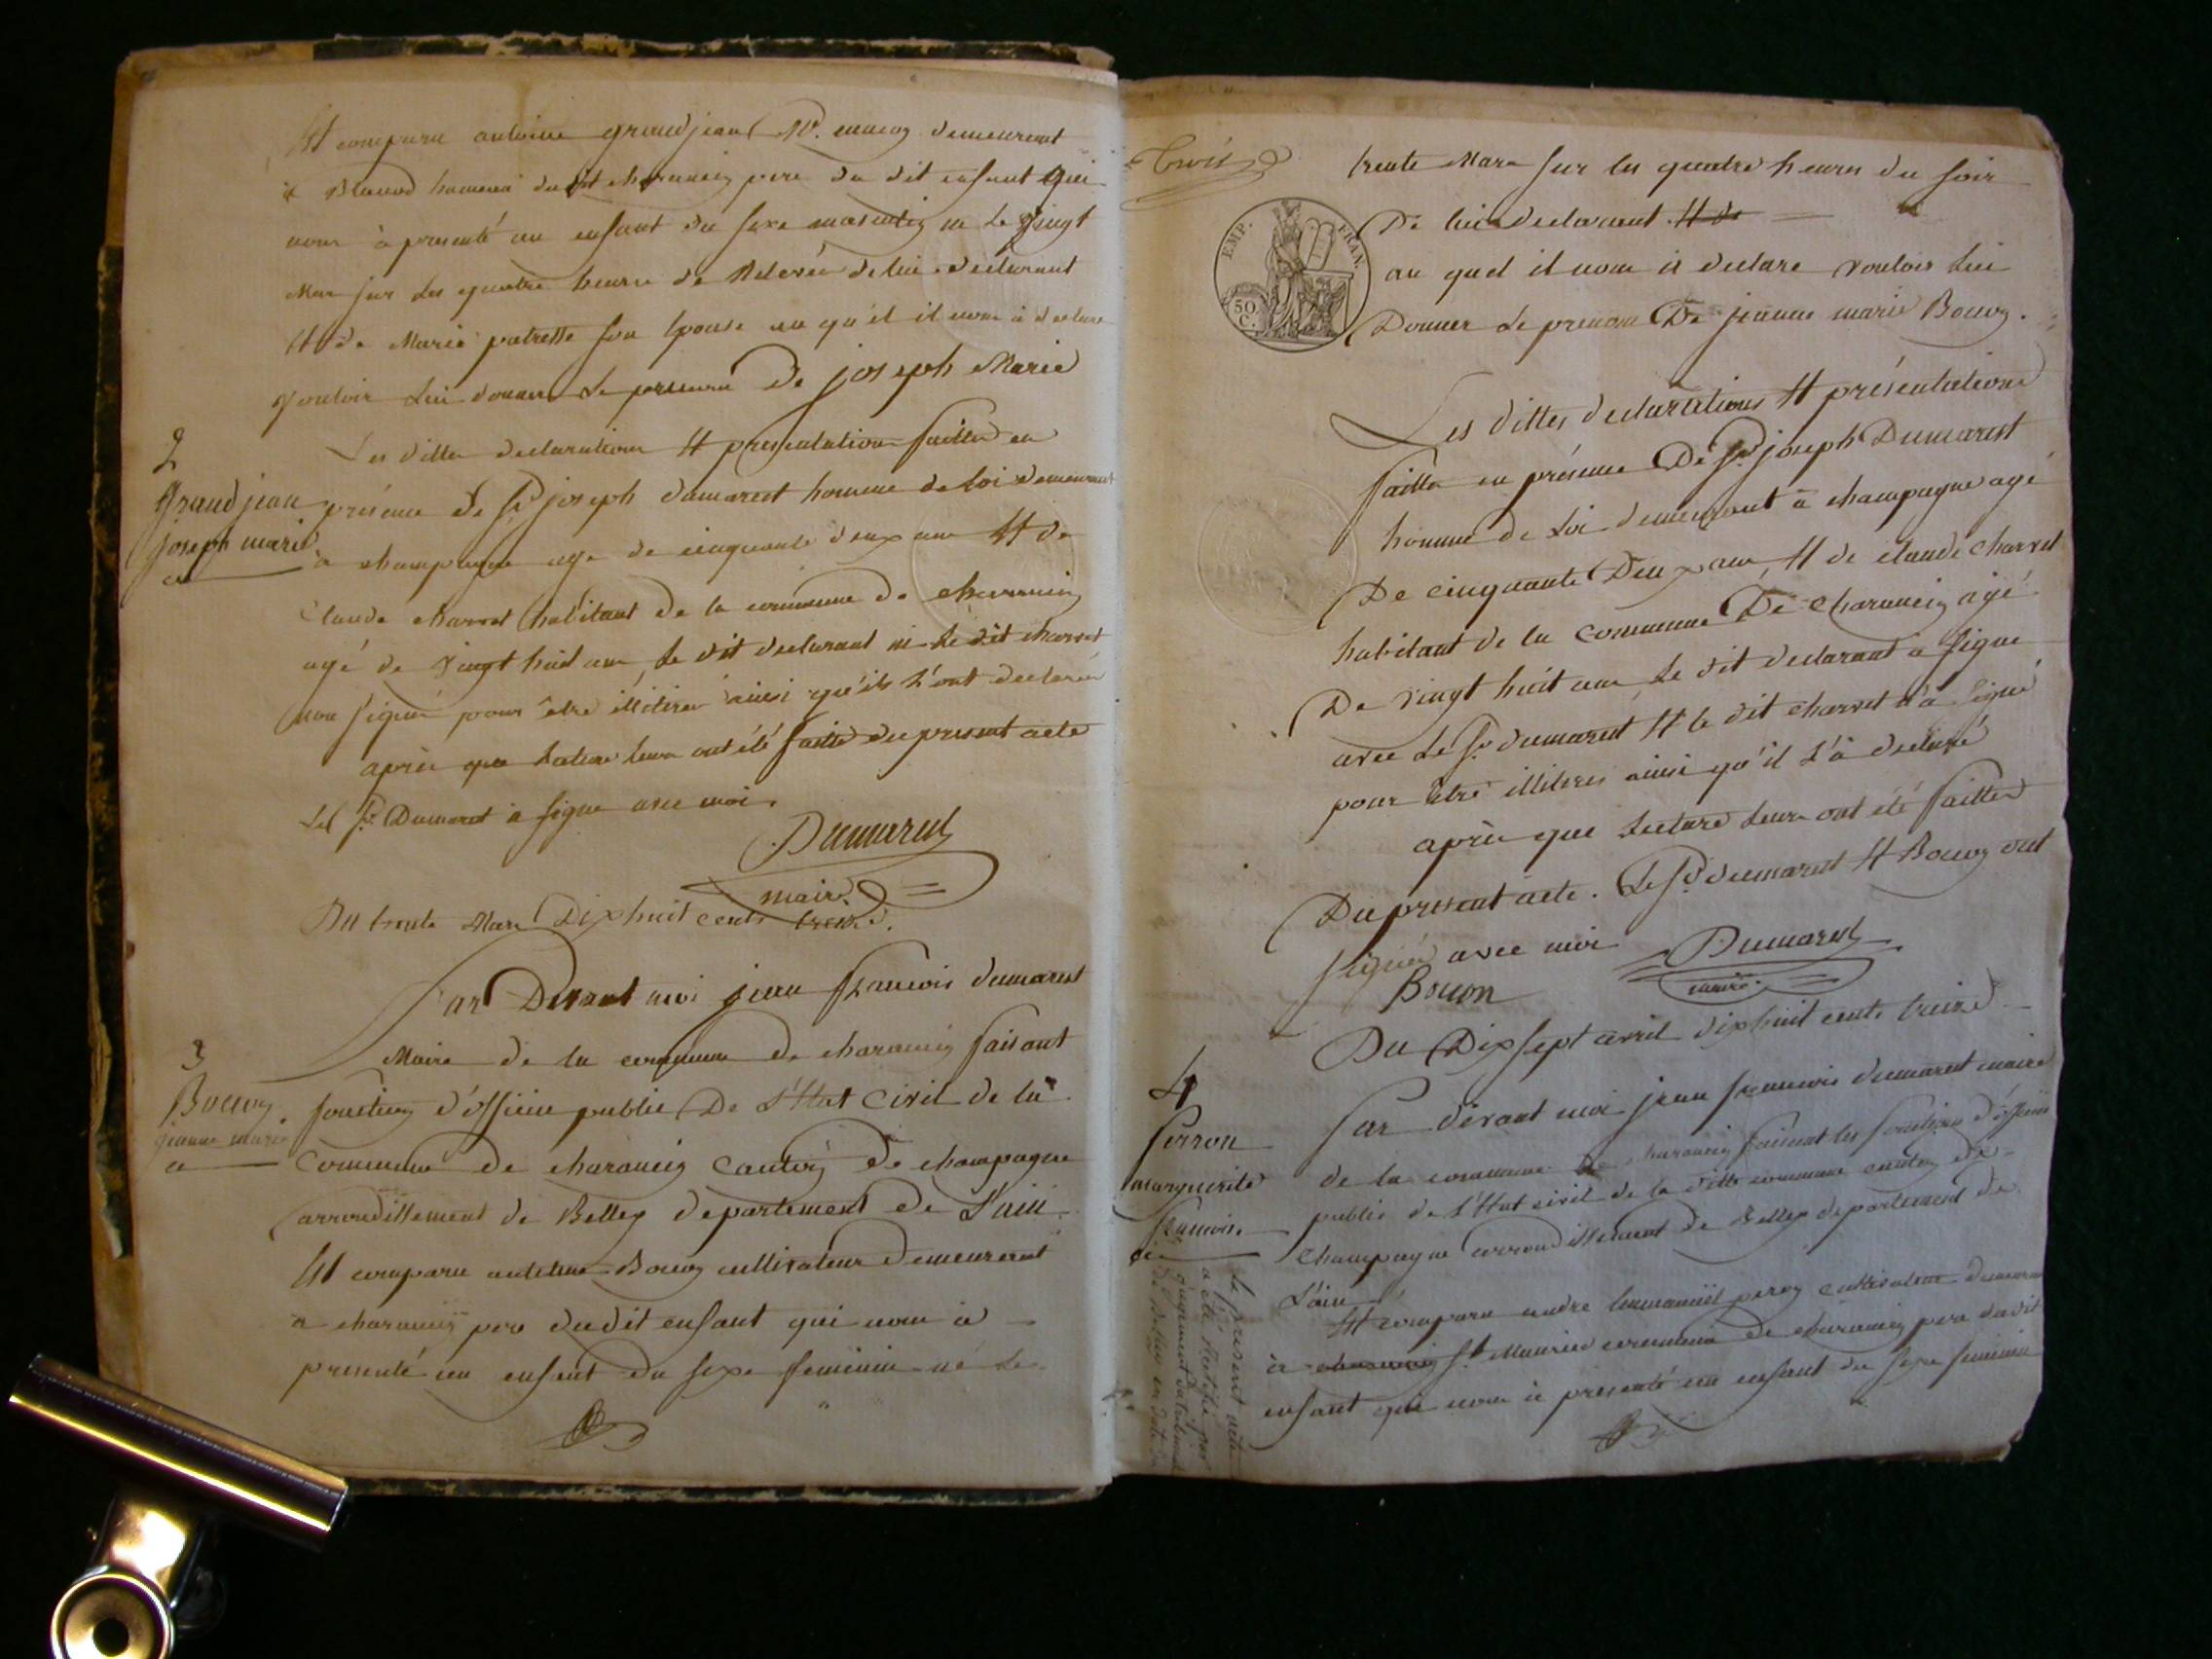 Et comparu antoine grandjean demeurant
à Blanod hameau dudit charancin pere du dit enfant qui
nous à presenté un enfant du sexe masculin né le vingt
Mars sur les quatre heures de Relevée de lui declarant
Et de Marie patrette son Epouse au qu'el il nous à declare
vouloir Lui donner Le prenom De joseph Marie
Les dittes declarations Et presentation faittes en
2
Grandjean
joseph marie
présence de Sr joseph dumarest homme de loi demeurant
à champagne age de cinquante deux ans Et de
Claude charvet habitant de la commune de charancin
agé de vingt huit ans, le dit declarant ni le dit charvet
non signé pour être illitirés ainsi qu'ils l'ont declaré
après que lecture leurs ont été faitte du present acte
Le Sr Dumarest à signe avec moi.
Dumarest
maire
Du trente Mars Dix huit cents treize.
Par Devant moi jean francois dumarest
Maire de la commune de charancin faisant
3
Bouvoy
jeanne marie
fonction d'officier public De L'Etat Civil de la
Commune de charancin Canton de champagne
arrondissement de Belley departement de L'ain
Et comparu anthelme Bouvoy cultivateur Demeurant
a charancin pere dudit enfant qui nous à
presenté un enfant du sexe feminin né le
Trois
trente Mars sur les quatre heures du soir
De lui declarant. Et de
EMP. FRAN.
50 C.
au quel il nous à declare vouloir Lui
Donner Le prenom De jeanne marie Bouvoy.
Les dittes declarations Et présentations
faitte en présence De Sr joseph Dumarest
homme de Loi demeurant à champagne agé
De cinquante Deux ans, Et de claude charvet
habitant de la Commune De Charancin agé
De vingt huit ans, Le dit declarant à signé
avec Le Sr dumarest Et le dit charvet n'a signé
pour être illitirés ainsi qu'il L'à declaré
après que Lecture Leurs ont été faittes
Du present acte. Le Sr dumarest Et Bouvoy ont
signé avec moi
Dumarest
Bouvon
maire
Du Dix sept avril dix huit cents traize
4
Perron
marguerite
francoise
Par dévant moi jean francois dumarest maire
de la commune de charancin faisant les fonctions d'officier
public de l'Etat civil de la ditte commune canton de
Champagne arrondissement de Belley departement de
L'ain
Et comparu andre Emmanuël peroy cultivateur demeurant
à charancin St Maurice commune de charancin pere dudit
enfant qui nous à presenté un enfant du sexe feminin
Le présent acte
a été rectifié par
jugement du tribunal
de Belley en date